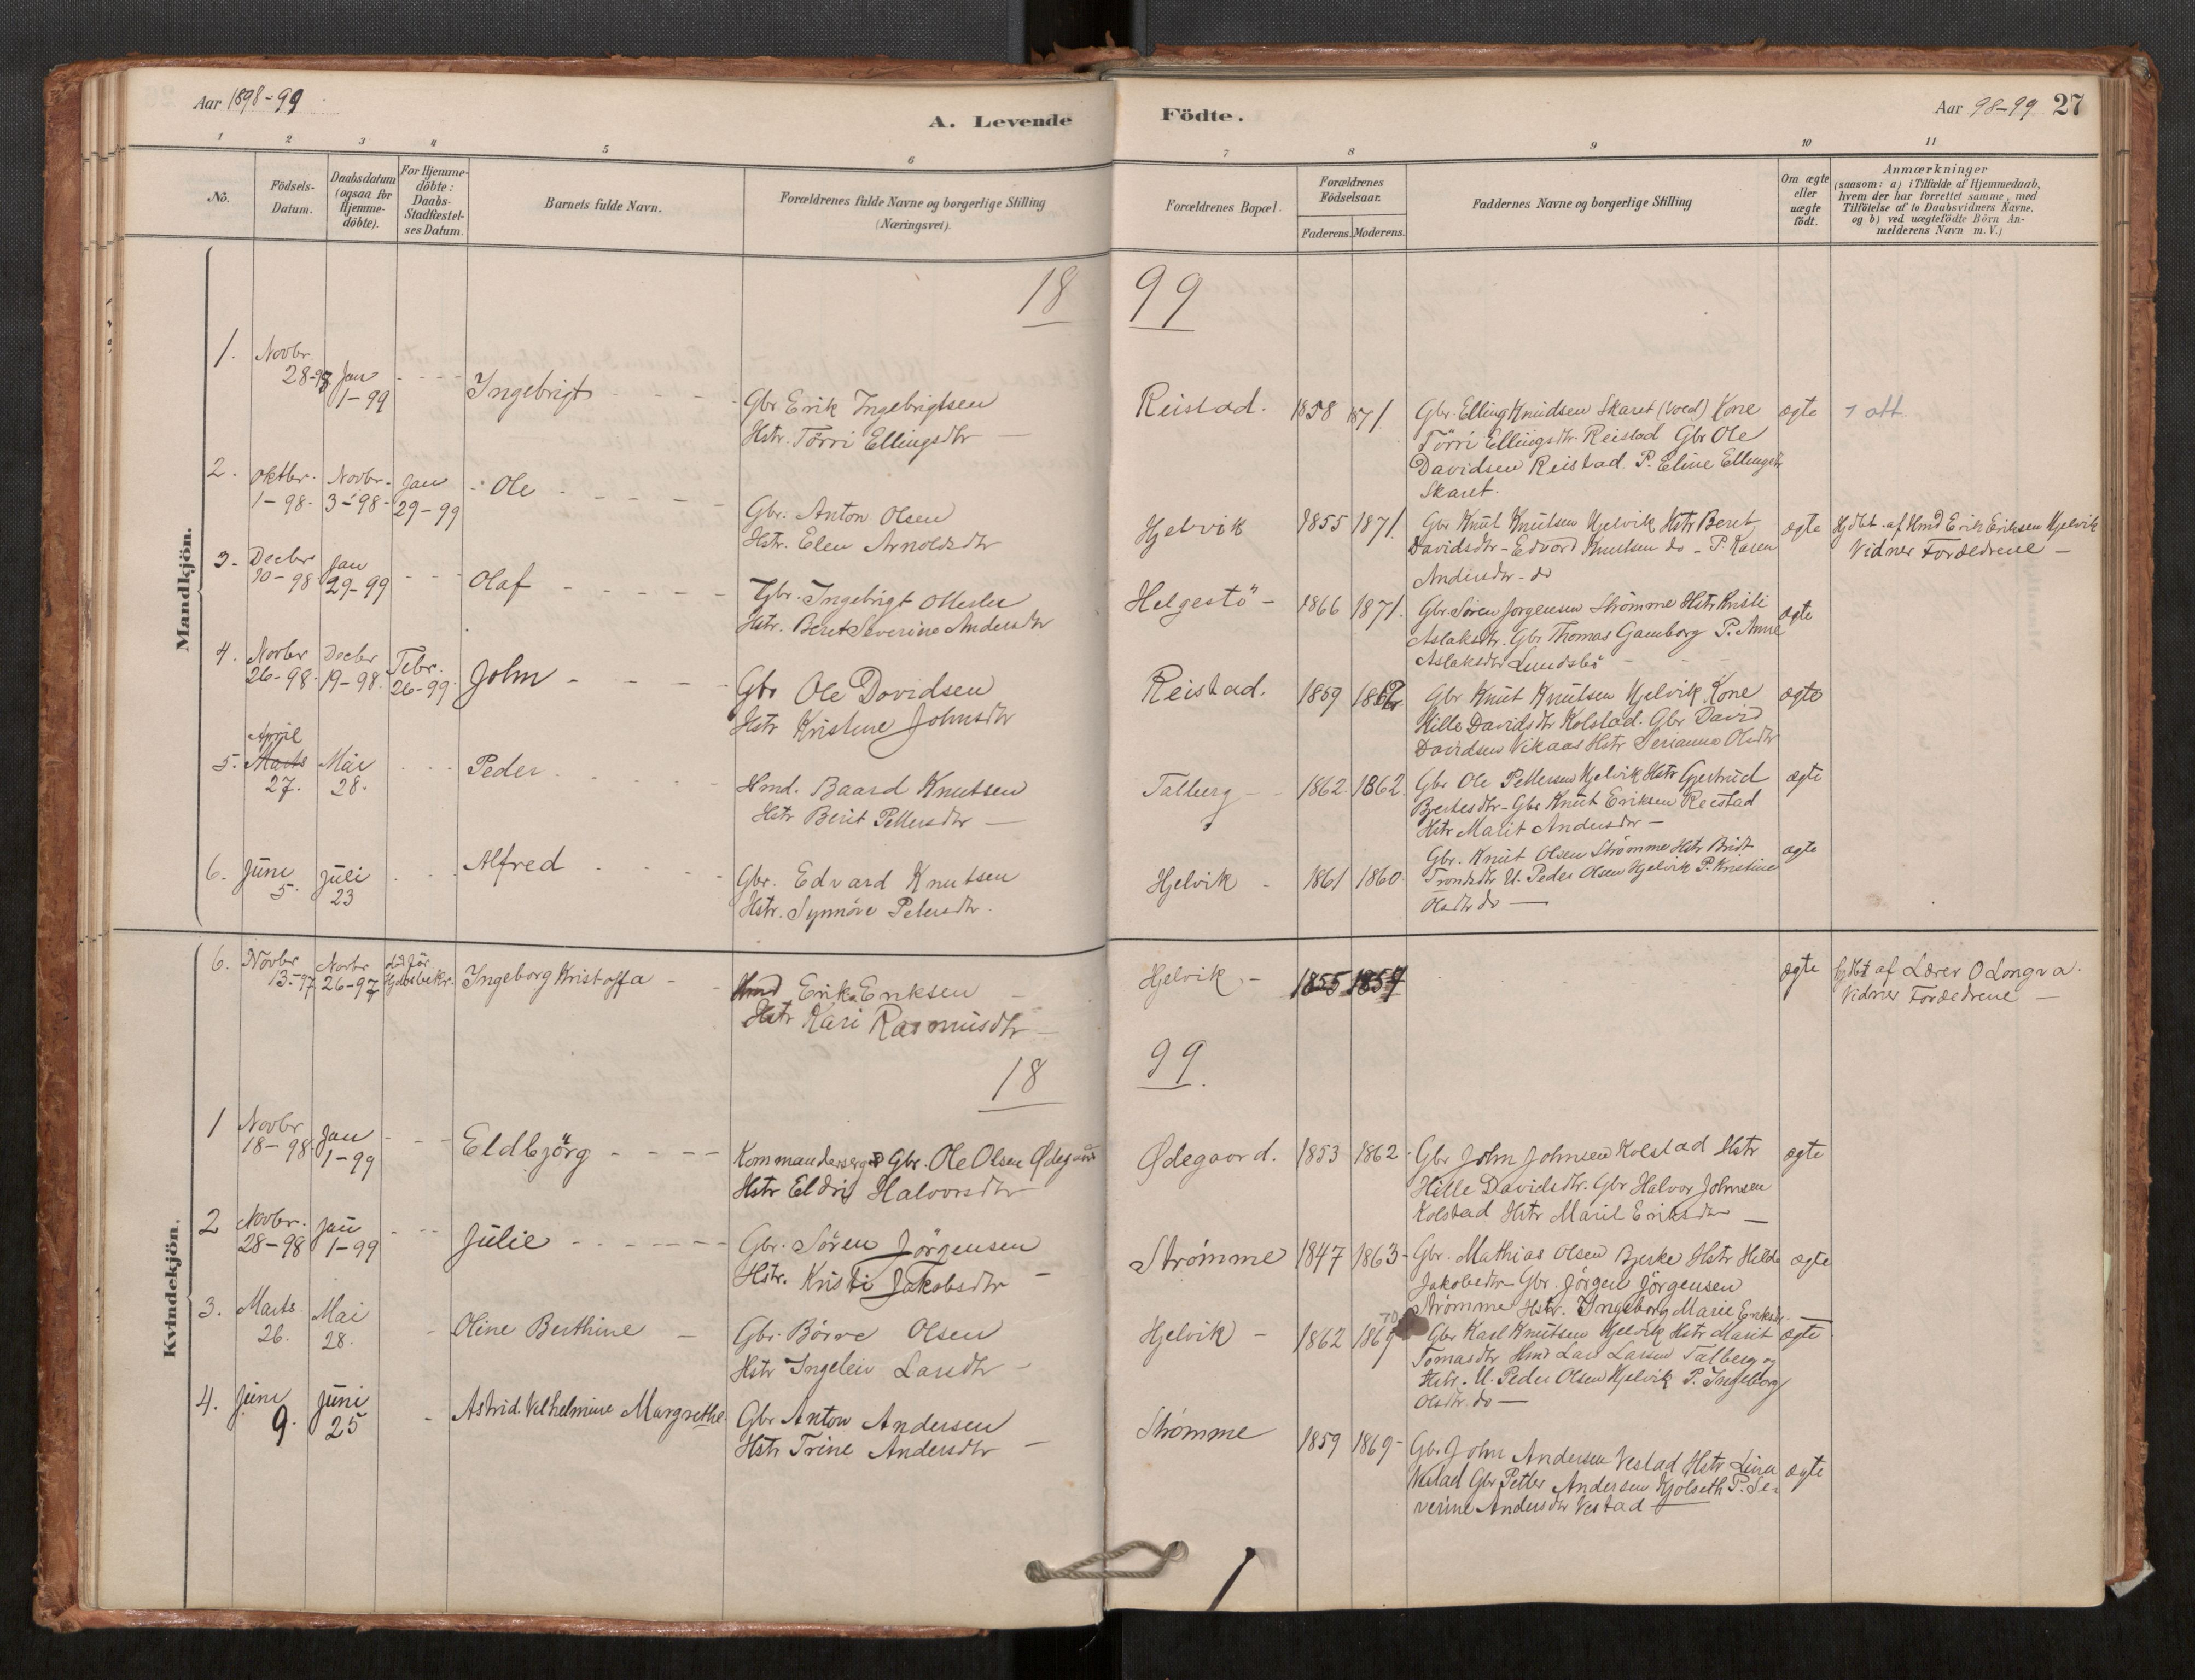 Aar 1898-99
A. Levende
Födte.
Aar 98-99 27
1 2 3 4 5 6
7 8 9 10 11
No.
Födsels-
Datum.
Daabsdatum
(ogsaa for
Hjemme-
döbte).
For Hjemme-
döbte:
Daabs-
Stadfæstel-
ses Datum.
Barnets fulde Navn.
Forældrenes fulde Navne og borgerlige Stilling
(Næringsvei).
Forældrenes Bopæl.
Forældrenes
Födselsaar.
Faderens. Moderens.
Faddernes Navne og borgerlige Stilling
Om ægte
eller
uægte
födt.
Anmærkninger
(saasom: a) i Tilfælde af Hjemmedaab,
hvem der har forrettet samme, med
Tilföielse af to Daabsvidners Navne.
og b) ved uægtefödte Börn An-
melderens Navn m. V.)
Mandkjön.
18 99
1. Novbr.
28-98 Jan
1-99
Ingebrigt
Gbr Erik Ingebrigtsen
Hstr. Törri Ellingsdtr
Reistad. 1858 1871
Gbr. Elling Knudsen Skaret (Voed) Kone
Törri Ellingsdtr. Reistad Gbr Ole
Davidsen Reistad. P. Eline Ellingsdtr
Skaret.
ægte
1 att.
2. Oktbr.
1-98. Novbr.
3-98 Jan
29-99
Ole
Gbr. Anton Olsen
Hstr. Elen Arnoldsdtr
Hjelvik 1855 1871.
Gbr Knut Knutsen Hjelvik Hstr Beret
Davidsdtr - Edvard Knutsen do - P. Karen
Andersdtr - do
ægte
Hjdbt. af Hmd Erik Eriksen Hjelvik
Vidner Forældrene
3. Decbr
30-98 Jan
29-99
Olaf
Gbr. Ingebrigt Ottesen
Hstr. Beret Severine Andersdtr
Helgestö 1866 1871.
Gbr Sören Jorgensen Strømme Hstr Kristi
Aslaksdtr. Gbr Thomas Gamborg P. Anne
Aslaksdtr Lundsbö
ægte
4. Novbr
26-98 Decbr
19-98. Febr.
26-99
John
Gbr Ole Davidsen
Hstr Kristine Johnsdtr
Reistad. 1859
Gbr Knut Knutsen Hjelvik Kone
Kille Davidsdtr Kolstad. Gbr David
Davidsen Vikaas Hstr Serianna Olsdtr
ægte
April
5. Marts
27. Mai
28.
Peder
Hmd. Baard Knutsen
Hstr Berit Pettersdtr
Talberg 1862 1862.
Gbr Ole Pettersen Hjelvik Hstr Gjertrud
Bjerkesdtr - Gbr Knut Eriksen Reistad
Hstr Marit Andersdtr
ægte
6. Juni
5. Juli
23
Alfred
Gbr. Edvard Knutsen
Hstr. Synnöve Petersdtr.
Hjelvik 1861 1860
Gbr. Knut Olsen Strømme Hstr Bridt
Trondsdtr U. Peder Olsen Hjelvik P. Kristine
Olsdtr do
ægte
Kvindekjön.
6. Novbr
13-97 Novbr
26-97 död för
Hjdbsbekr.
Ingeborg Kristoffa
Hmd Erik Eriksen
Hstr Kari Rasmusdtr
Hjelvik 1855 1857
ægte
hjdbt af Lærer O Longva.
Vidner Forældrene
18 99.
1 Novbr
18-98 Jan
1-99
Eldbjörg
Kommandersergt Gbr. Ole Olsen Ødegaard
Hstr Eldri Halvorsdtr
Ødegaard. 1853 1862
Gbr John Johnsen Kolstad Hstr
Hille Davidsdtr. Gbr Halvor Johnsen
Kolstad Hstr Marit Eriksdtr
ægte
2 Novbr.
28-98 Jan
1-99
Julie
Gbr. Sören Jörgensen
Hstr. Kristi Jakobsdtr
Strømme 1847 1863
Gbr. Mathias Olsen Bjerke Hstr Hilda
Jakobsdtr - Gbr. Jörgen Jörgensen
Strømme Hstr. Ingeborg Marie Eriksdtr.
ægte
3. Marts
26. Mai
28.
Oline Berthine
Gbr. Börre Olsen
Hstr Ingelev Larsdtr
Hjelvik 1862 1869 70
Gbr Karl Knutsen Hjelvik Hstr Marit
Tomasdtr Hmd Lars Larsen Talberg og
Hstr. U. Peder Olsen Hjelvik P. Ingeborg
Olsdtr. do
ægte
4. Juni
9. Juni
25
Astrid Vilhelmine Margrethe
Gbr Anton Andersen
Hstr Trine Andersdtr
Strømme 1859 1869
Gbr John Andersen Vestad Hstr Lina
Vestad Gbr Petter Andersen Kjolseth P. Se-
verine Andersdtr Vestad
ægte